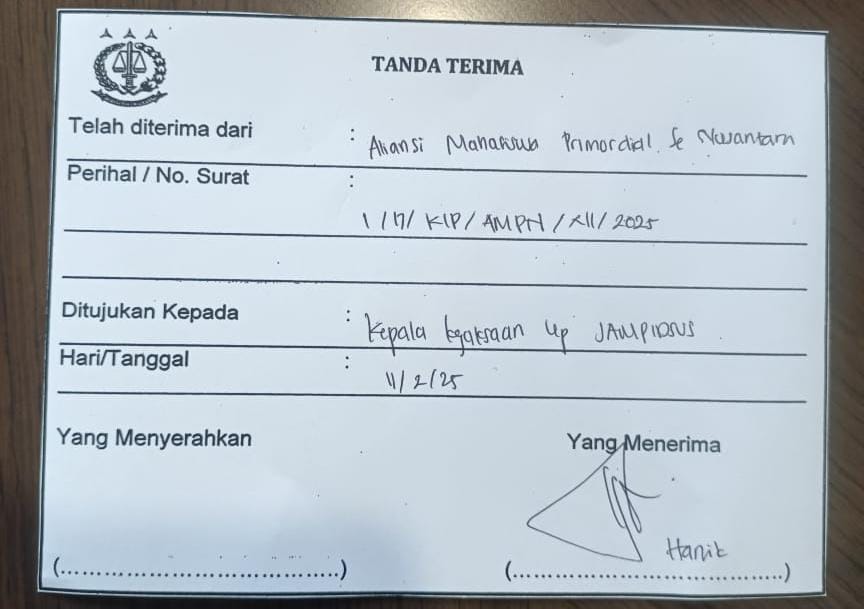 TANDA TERIMA
Telah diterima dari : Aliansi Mahasiswa Primordial Se Nusantara
Perihal / No. Surat :
1 / 17/ KIP / AMPN / XII / 2025
Ditujukan Kepada : Kepala kejaksaan up JAMPIDSUS
Hari/Tanggal : 11/2/25
Yang Menyerahkan
Yang Menerima
Hanik
(........................................) (........................................)